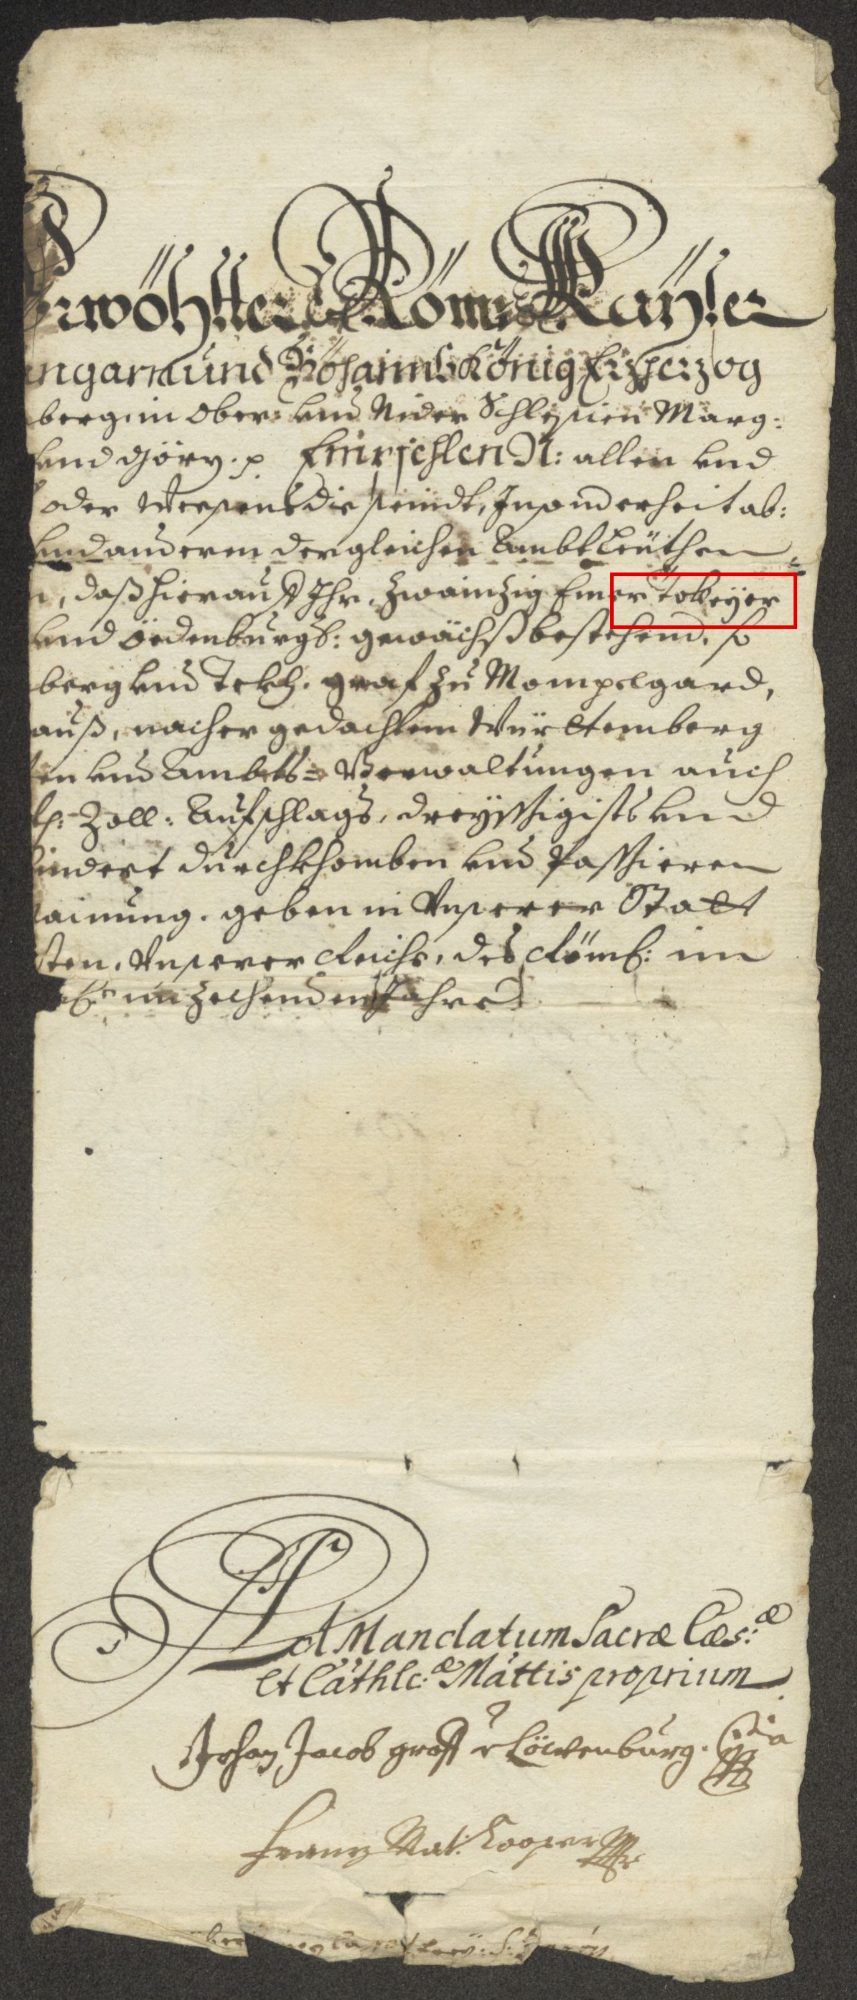 Erwöhlter Röm: Kayser
ngarn und Böhaimb König Ertzhertzog
berg in Ober: vnd Nider Schlesien Marg:
vnd Görz. p Empiehlen N: allen vnd
oder Weesens die seindt, Insonderheit ab:
vnd anderen dergleichen Ambtleüthen
n, daß hierauß Ihr, zwainzig Emer Tokeyer
vnd Ödenburgs: gewächß bestehend, so
berg vnd Tekh. graf zu Mompelgard,
auß, nacher gedachtem Württemberg
ten vnd Ambts= Verwaltungen auch
Zoll: Aufschlags, dreyssigists vnd
hindert durchkhomben vnd Passieren
mainung. geben in Vnserer Statt
sten, Vnserer Reiche, des Römb: im
im zechenden Jahre
Ad Mandatum Sacræ Cæs:æ
et Cathlc:æ Mattis proprium
Johan Jacob graff v Löwenburg.
Franz Mat: